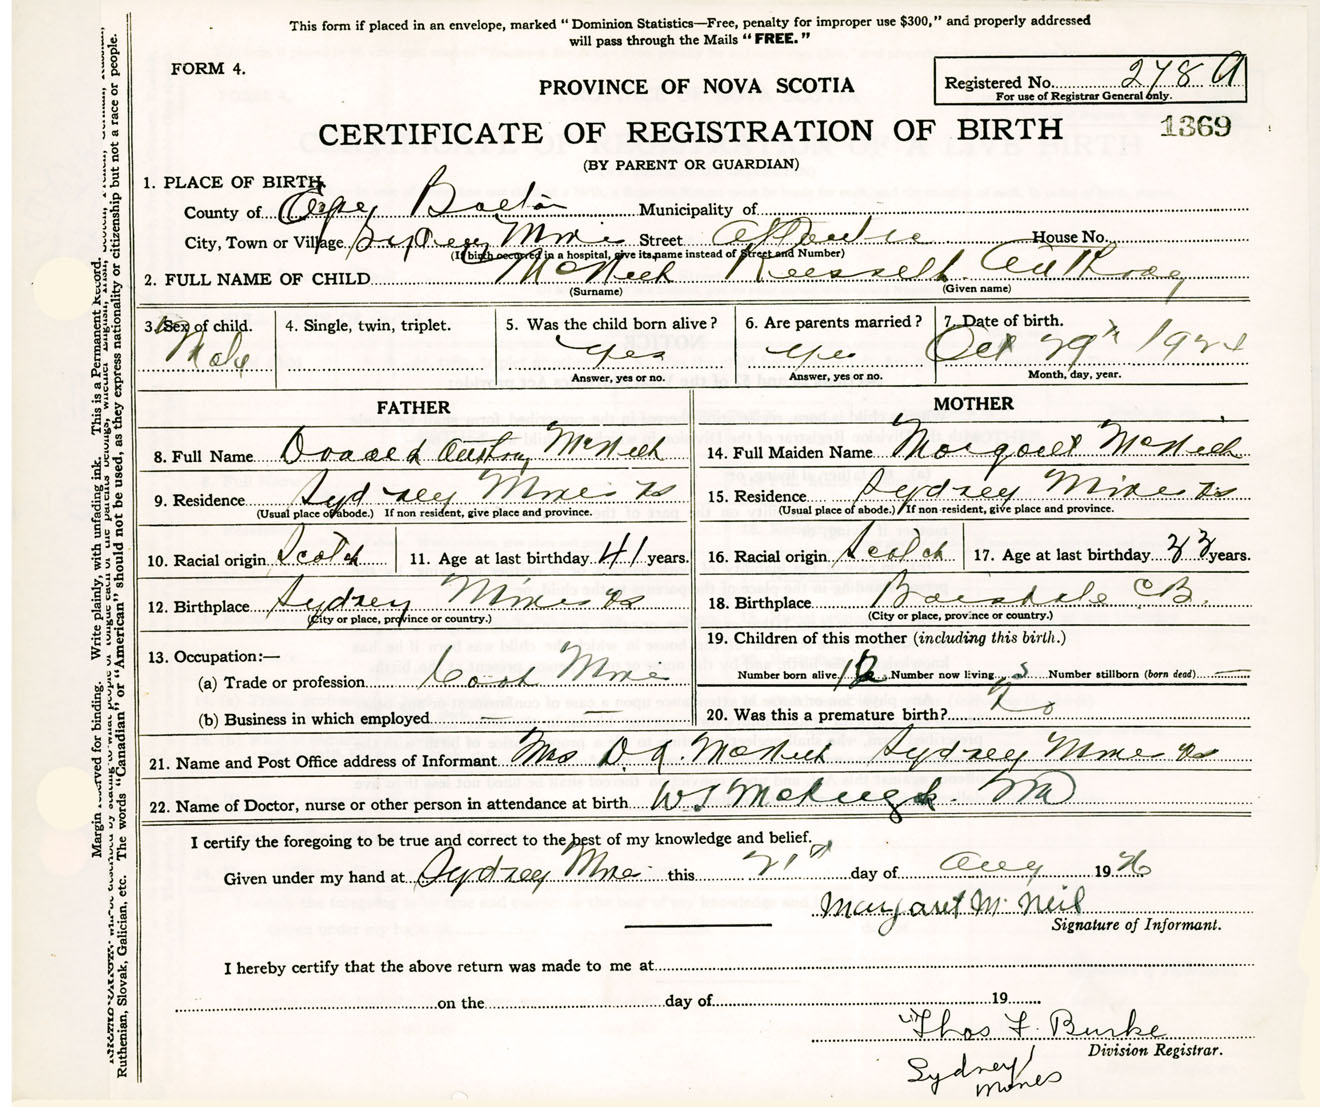 This form if placed in an envelope, marked "Dominion Statistics—Free, penalty for improper use $300," and properly addressed
will pass through the Mails "FREE."
FORM 4.
PROVINCE OF NOVA SCOTIA
Registered No. 278 A
For use of Registrar General only.
CERTIFICATE OF REGISTRATION OF BIRTH 1369
(BY PARENT OR GUARDIAN)
1. PLACE OF BIRTH
County of Cape Breton Municipality of
City, Town or Village Sydney Mines Street House No.
(If birth occured in a hospital, give its name instead of Street and Number)
2. FULL NAME OF CHILD McNeil Russell Anthony
(Surname) (Given name)
3. Sex of child. 4. Single, twin, triplet. 5. Was the child born alive? 6. Are parents married? 7. Date of birth.
Male Yes Yes Oct 29th 192
Answer, yes or no. Answer, yes or no. Month, day, year.
FATHER MOTHER
8. Full Name Donald Anthony McNeil 14. Full Maiden Name Margaret McNeil
9. Residence Sydney Mines NS 15. Residence Sydney Mines NS
(Usual place of abode.) If non resident, give place and province. (Usual place of abode.) If non-resident, give place and province.
10. Racial origin Scotch 11. Age at last birthday 41 years. 16. Racial origin Scotch 17. Age at last birthday years.
12. Birthplace Sydney Mines NS 18. Birthplace Boisdale C.B.
(City or place, province or country.) (City or place, province or country.)
19. Children of this mother (including this birth.)
13. Occupation:—
(a) Trade or profession Coal Mine Number born alive Number now living Number stillborn (born dead)
(b) Business in which employed — — 20. Was this a premature birth? No
21. Name and Post Office address of Informant Mrs D. A. McNeil Sydney Mines NS
22. Name of Doctor, nurse or other person in attendance at birth MD
I certify the foregoing to be true and correct to the best of my knowledge and belief.
Given under my hand at Sydney Mines this 21st day of Aug 1926
Margaret McNeil
Signature of Informant.
I hereby certify that the above return was made to me at
on the day of 19
Thos F. Burke
Division Registrar.
Sydney
Mines
Margin reserved for binding. Write plainly, with unfading ink. This is a Permanent Record.
Ruthenian, Slovak, Galician, etc. The words "Canadian" or "American" should not be used, as they express nationality or citizenship but not a race or people.